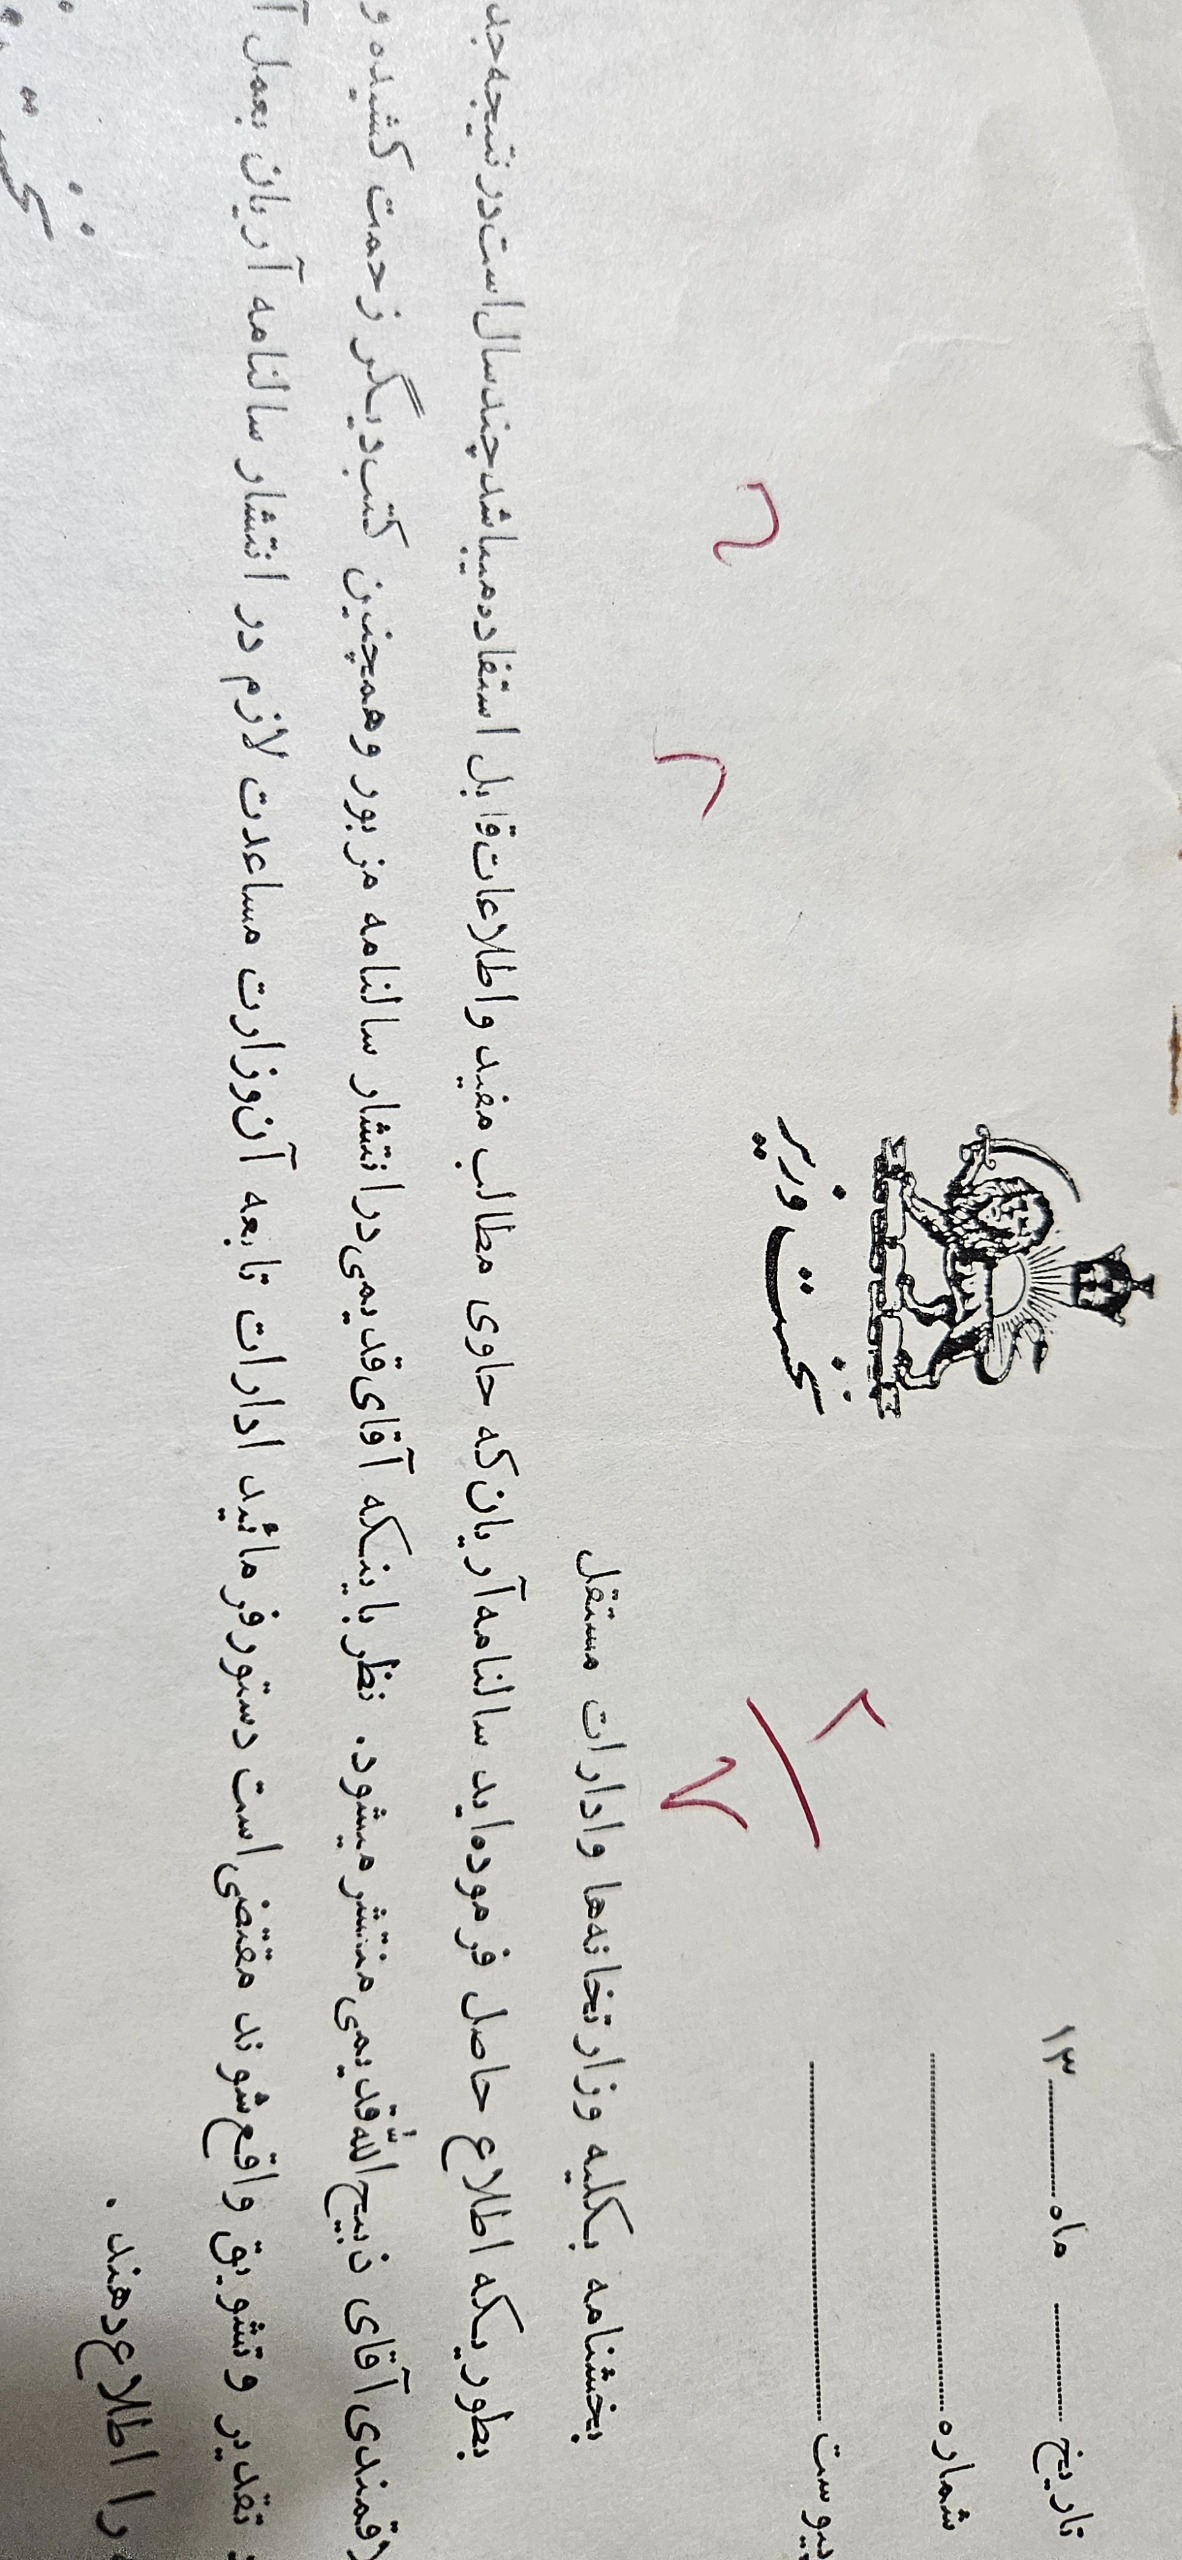 تاریخ ماه ۱۳
شماره
پیوست
نخست وزیر
بخشنامه بکلیه وزارتخانه‌ها وادارات مستقل
بطوریکه اطلاع حاصل فرموده‌اید سالنامه آریان که حاوی مطالب مفید واطلاعات قابل استفاده میباشد چند سال است در نتیجه
آقای ذبیح‌الله قدیمی منتشر میشود. نظر باینکه آقای قدیمی در انتشار سالنامه مزبور وهمچنین کتب دیگر زحمت کشیده و
تقدیر وتشویق واقع شوند مقتضی است دستور فرمائید ادارات تابعه آن وزارت مساعدت لازم در انتشار سالنامه آریان بعمل
را اطلاع دهند .